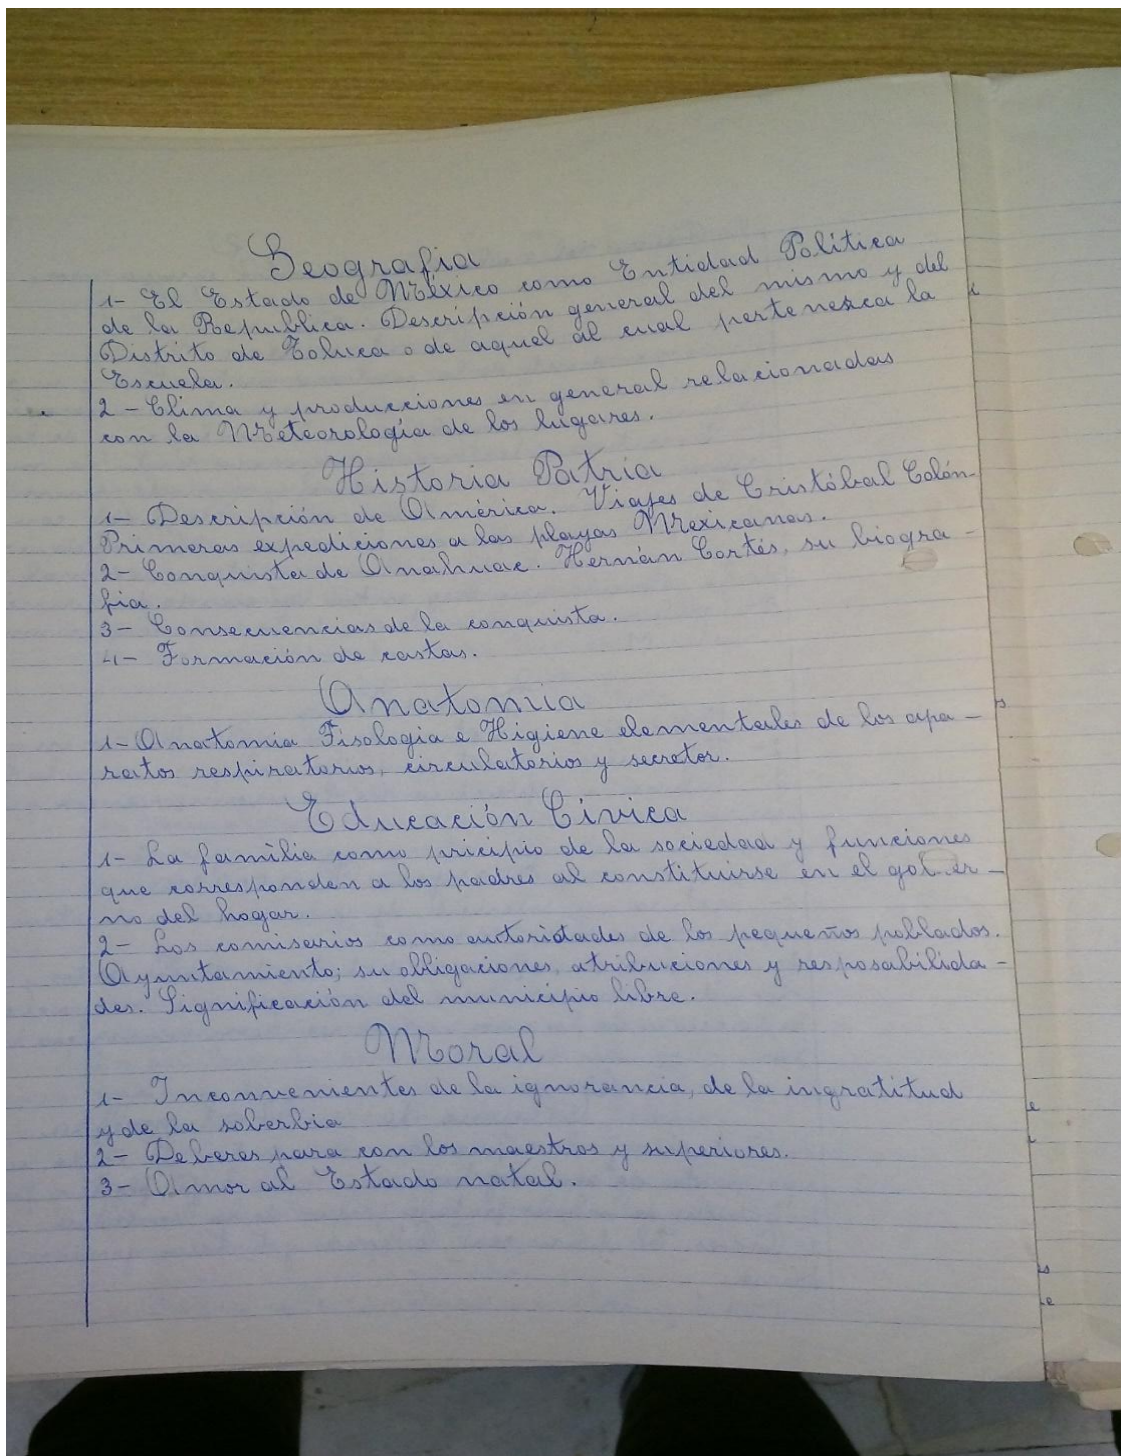 Geografia
1- El Estado de México como Entidad Política
de la Republica. Descripción general del mismo y del
Distrito de Toluca o de aquel al cual pertenezca la
Escuela.
2- Clima y producciones en general relacionadas
con la Meteorología de los lugares.
Historia Patria
1- Descripción de América. Viajes de Cristóbal Colón-
Primeras expediciones a las playas Mexicanas.
2- Conquista de Anahuac. Hernán Cortés, su biogra-
fia.
3- Consecuencias de la conquista.
4- Formación de castas.
Anatomia
1- Anatomia Fisología e Higiene elementales de los apa-
ratos respiratorios, circulatorios y secretor.
Educación Cívica
1- La família como pricipio de la sociedad y funciones
que corresponden a los padres al constituirse en el gobier-
no del hogar.
2- Los comisarios como autoridades de los pequeños poblados.
Ayuntamiento; su obligaciones, atribuciones y resposabilida-
des. Significación del municipio libre.
Moral
1- Inconvenientes de la ignorancia, de la ingratitud
y de la soberbia
2- Deberes para con los maestros y superiores.
3- Amor al Estado natal.